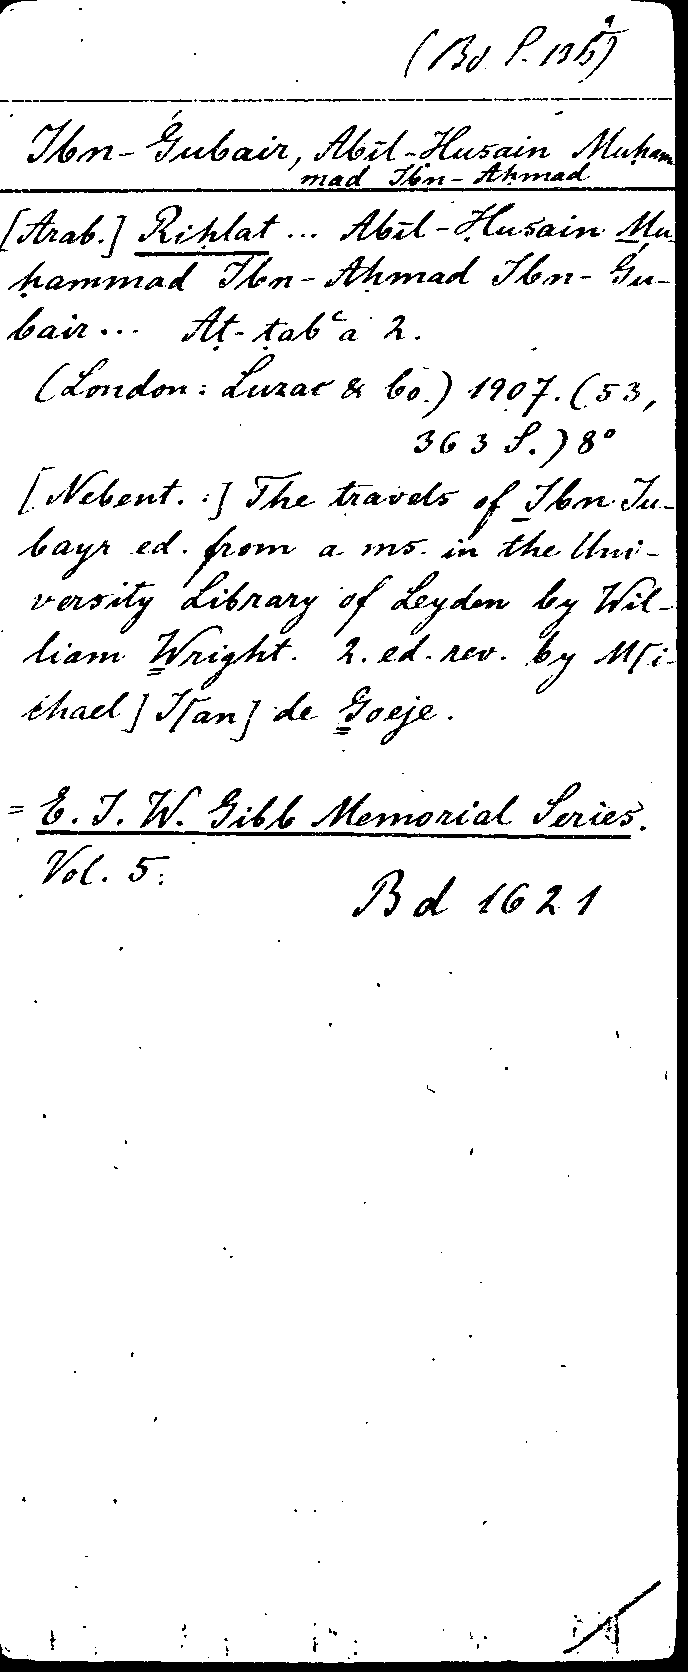 (Bd P. 136ª)
Ibn-Ǵubair, Abīl-Ḥusain Muḥam
mad Ibn-Aḥmad
[Arab.] Riḥlat ... Abīl-Ḥusain Mu-
ḥammad Ibn-Aḥmad Ibn-Ǵu-
bair... Aṭ-ṭabʿa 2.
(London: Luzac & Co.) 1907. (53,
363 S.) 8°
[Nebent.:] The travels of Ibn Ju-
bayr ed. from a ms. in the Uni-
versity Library of Leyden by Wil-
liam Wright. 2. ed. rev. by M[i-
chael] J[an] de Goeje.
= E. J. W. Gibb Memorial Series.
Vol. 5.
Bd 1621